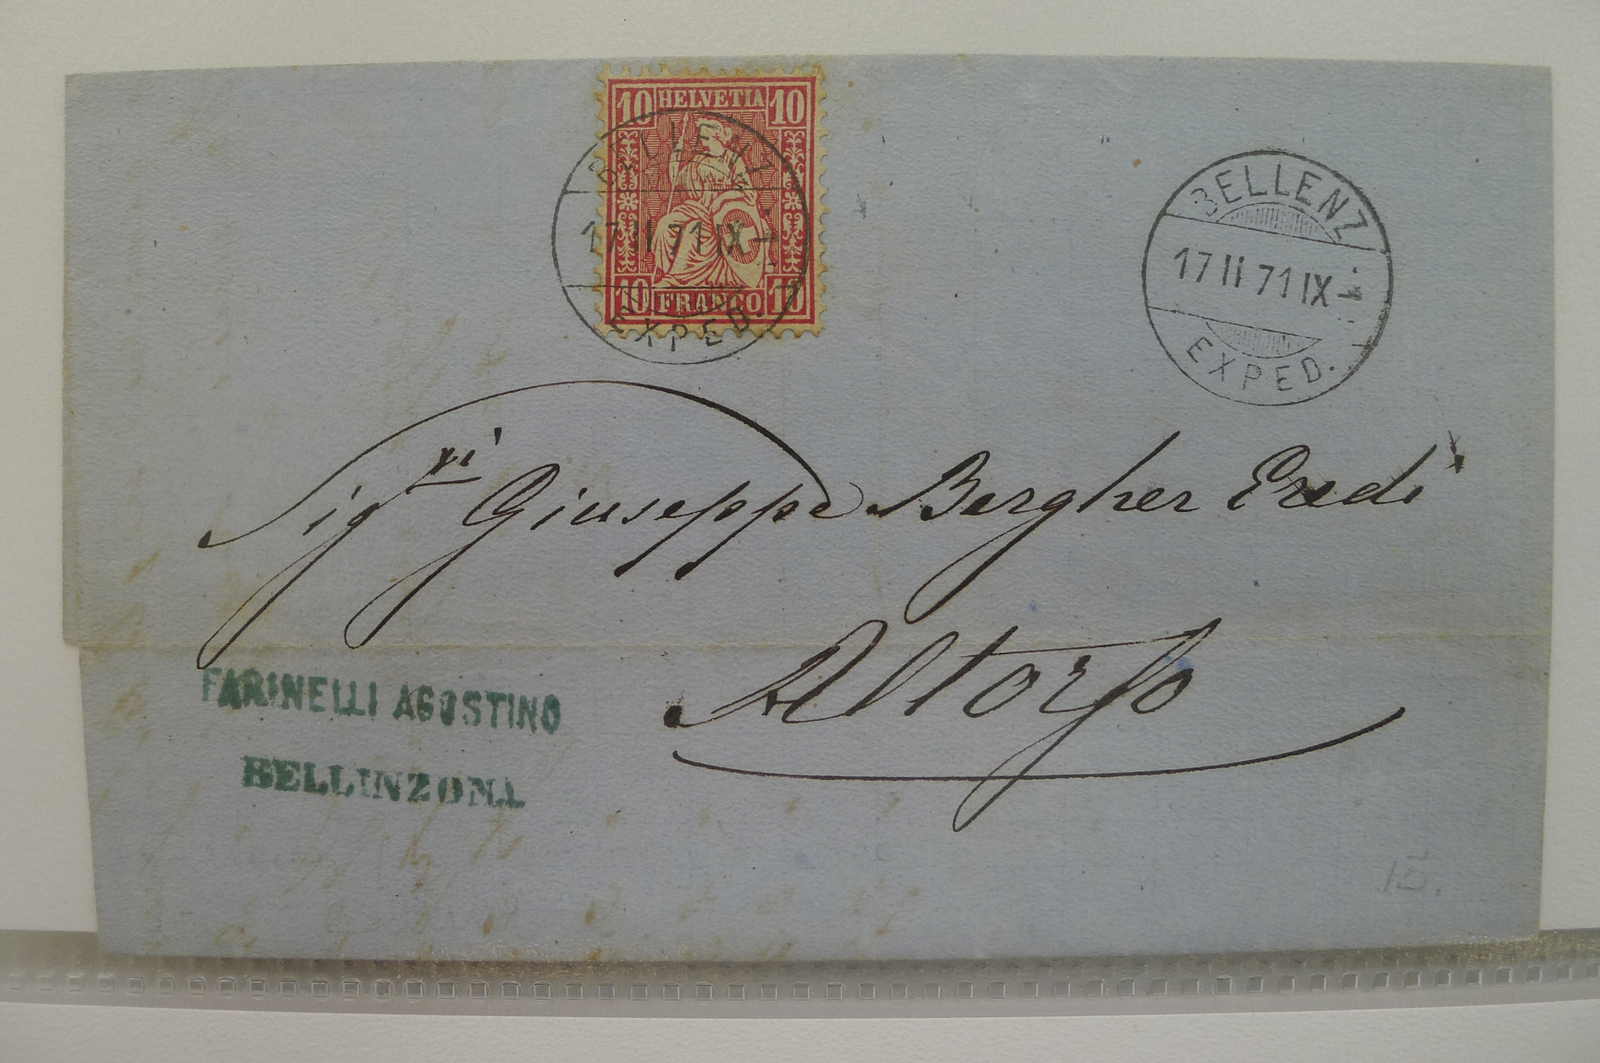 10 HELVETIA 10
10 FRANCO 10
BELLENZ
17 II 71 IX-
EXPED.
BELLENZ
17 II 71 IX-
EXPED.
Sigri Giuseppe Bergher Eredi
Altorfo
FARINELLI AGOSTINO
BELLINZONA
15.